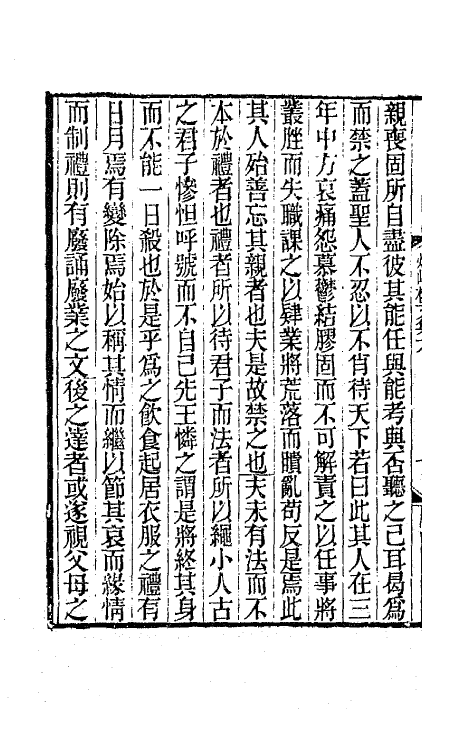 親喪固所自盡彼其能任與能考與否聽之已耳曷爲
而禁之蓋聖人不忍以不肖待天下若曰此其人在三
年中方哀痛怨慕鬱結膠固而不可解責之以任事將
叢脞而失職課之以肄業將荒落而瞶亂苟反是焉此
其人殆善忘其親者也夫是故禁之也夫未有法而不
本於禮者也禮者所以待君子而法者所以繩小人古
之君子慘怛呼號而不自已先王憐之謂是將終其身
而不能一日殺也於是乎爲之飲食起居衣服之禮有
日月焉有變除焉始以稱其情而繼以節其哀而緣情
而制禮則有廢誦廢業之文後之達者或遂視父母之